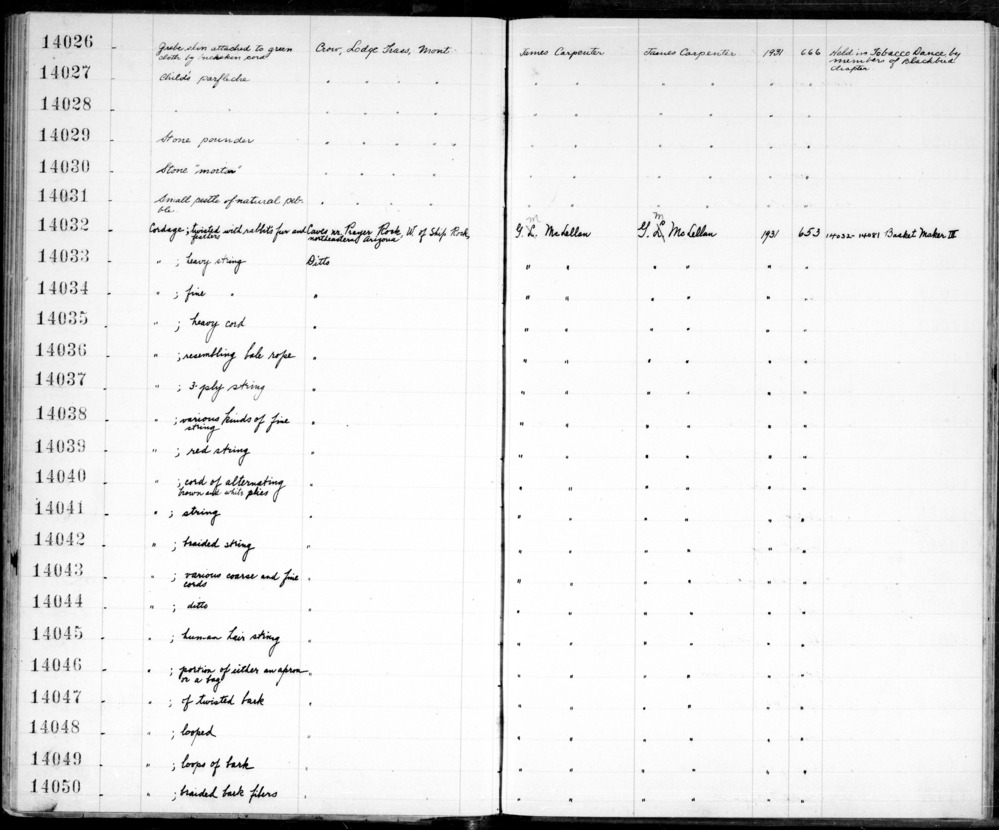 14026 Grebe skin attached to green Crow, Lodge Grass, Mont James Carpenter James Carpenter 1931 666 Held in Tobacco Dance by
cloth by buckskin cord members of Blackbird
chapter
14027 Child's parfleche " " " " " " " " " "
14028 " " " " " " " " " " "
14029 Stone pounder " " " " " " " " " "
14030 Stone "mortar" " " " " " " " " " "
14031 Small pestle of natural peb- " " " " " " " " " "
ble.
14032 Cordage; twisted with rabbit's fur and Caves nr. Prayer Rock, W. of Ship Rock, G. M. L. McLellan G. M. L. McLellan 1931 653 14032-14081 Basket Maker III
feathers northeastern Arizona
14033 " ; heavy string Ditto " " " " " "
14034 " ; fine " " " " " " " "
14035 " ; heavy cord " " " " " " "
14036 " ; resembling bale rope " " " " " " "
14037 " ; 3-ply string " " " " " " "
14038 " ; various kinds of fine " " " " " " "
string
14039 " ; red string " " " " " "
14040 " ; cord of alternating " " " " " " "
brown and white plies
14041 " ; string " " " " " " "
14042 " ; braided string " " " " " " "
14043 " ; various coarse and fine " " " " " " "
cords
14044 " ; ditto " " " " " " "
14045 " ; human hair string " " " " " " "
14046 " ; portion of either an apron " " " " " " "
or a bag
14047 " ; of twisted bark " " " " " " "
14048 " ; looped " " " " " " "
14049 " ; loops of bark " " " " " " "
14050 " ; braided bark fibers " " " " " " "